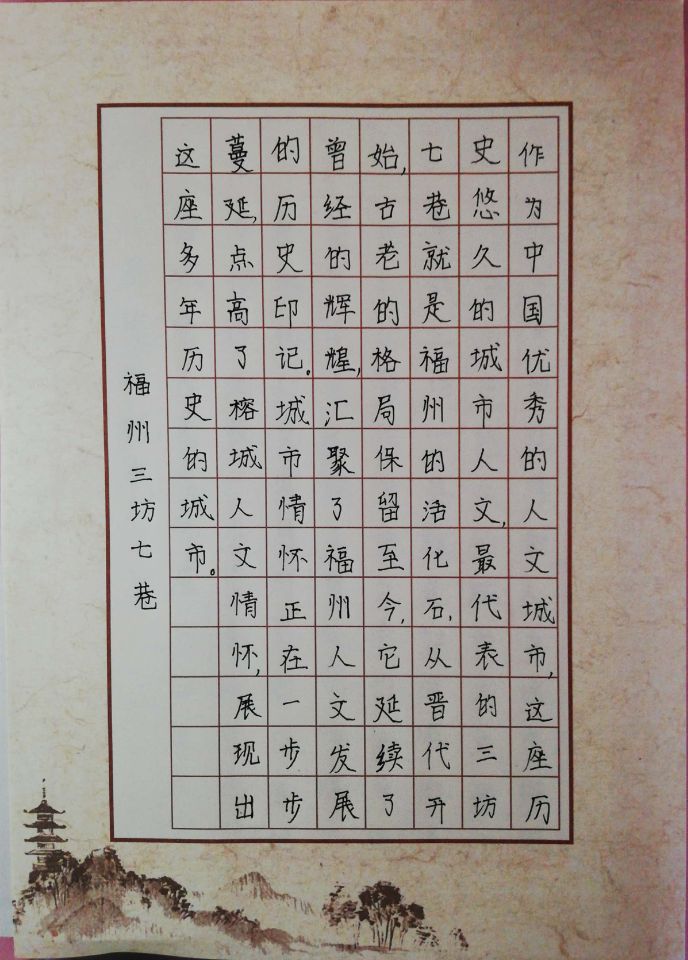 作为中国优秀的人文城市,这座历
史悠久的城市人文,最代表的三坊
七巷就是福州的活化石,从晋代开
始,古老的格局保留至今,它延续了
曾经的辉煌,汇聚了福州人文发展
的历史印记。城市情怀正在一步步
蔓延,点高了榕城人文情怀,展现出
这座多年历史的城市。
福州三坊七巷